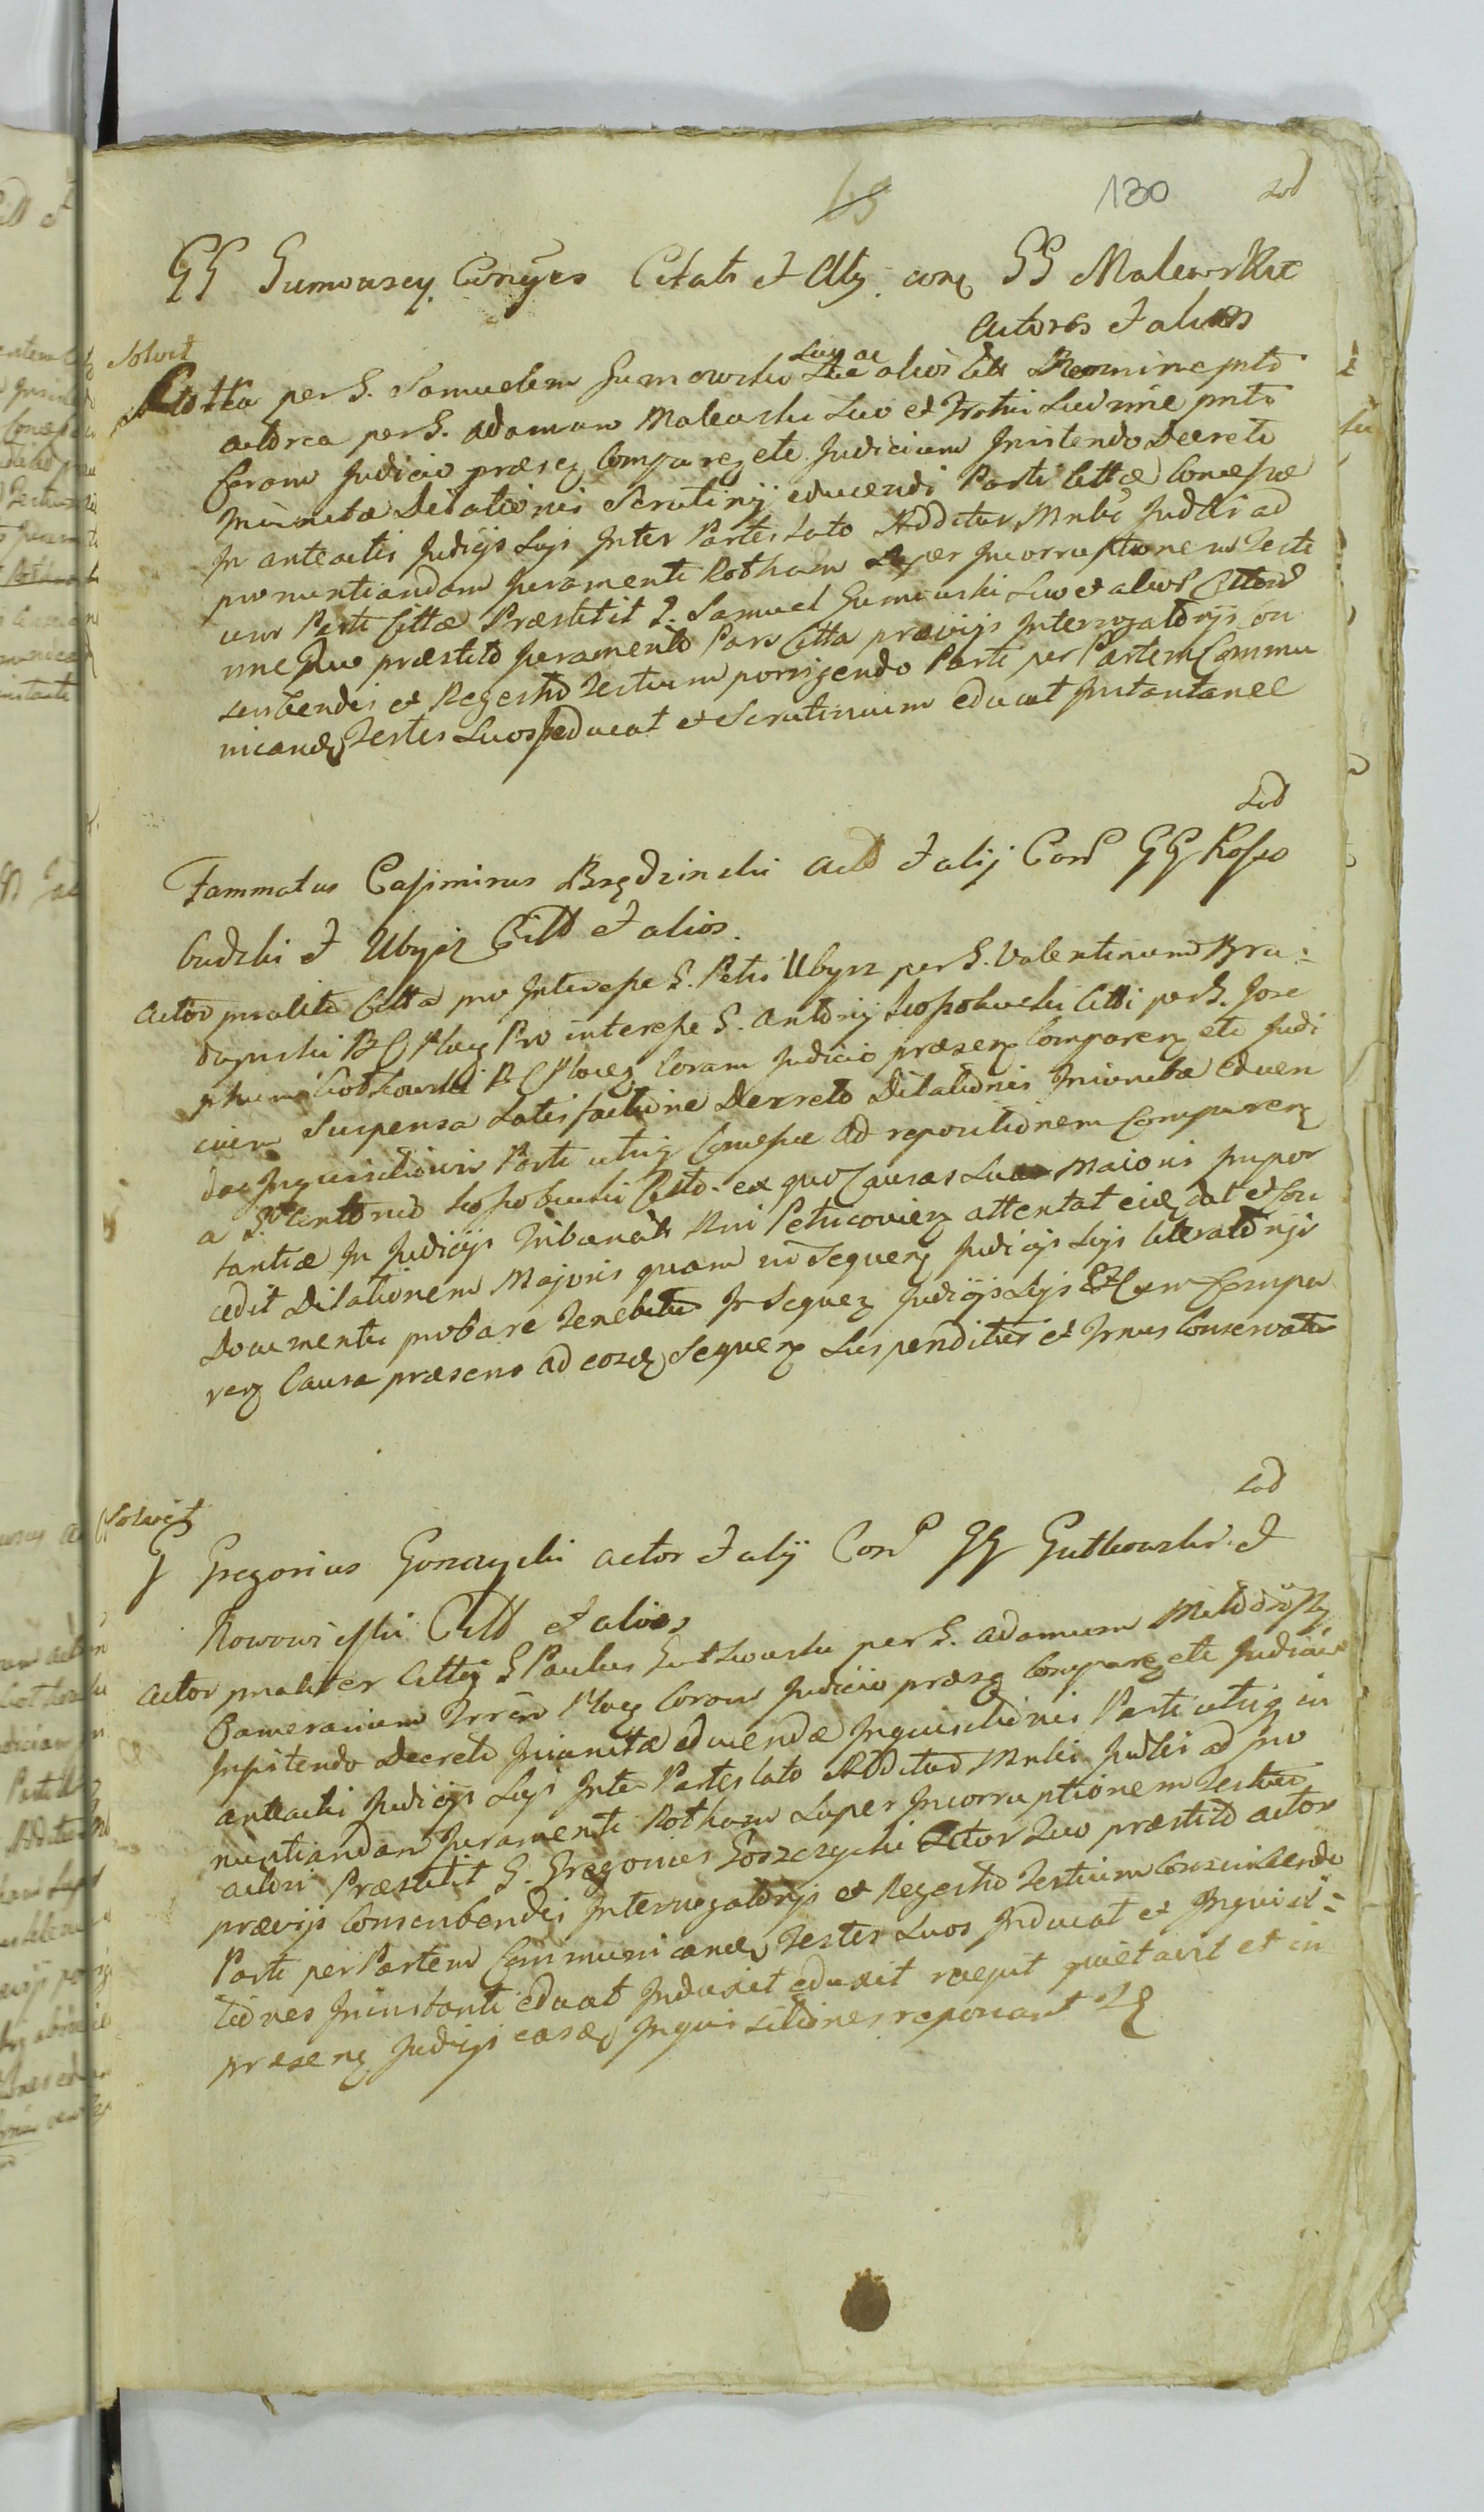 65 130 Sod
GG Gumowscy Citati et Alij con GG Malewskie
Actores et alios
Solvit
Citta per G. Samuelem Gumowski Suo ac alior Citt Nomine pntr
actorea per G. Adamum Malewski Suo et Fratris Sui nne pntr
coram Judicio præsenz Comparen etc Judicium Insistendo Decreto
Injunctæ Dilationis Scrutinij educendi Parti Cittæ Concessæ
In anteactis Judicijs Sujs Inter Partes Lato Additur Mnlis Judlis ad
pronuntiandam Juramenti Rotham Super Incorruptionem Testi
um Parti Cittæ Præstitit G. Samuel Gumowski Suo et alior Cittor
nne Quo præstito Juramento Pars Citta prævijs Interrogatorijs con
scribendis et Regestro Testium porrigendo Parti per Partem Commu
nicand Testes Suos Inducat et Scrutinium educat Instantanee
Sod
Fammatus Casimirus Brędzinski Actor et alij Con GG Rosso
budzki et Ubysz Citt et alios.
Actor pnaliter Citta pro Interesse G. Petri Ubysz per G. Valentinum Bra:
B C Płoc Pro interesse G. Antonij Rossobudzki Citti per G. Jose
phum Gotkowski B C Płocen Coram Judicio præsenz Comparen etc Judi
cium Suspensa Satisfactione Decreto Dilationis Injunctæ educen
dae Inquisitionis Parti utriq Concessæ ad repositionem Comparen
a G. Antonio Rossobudzki Citto ex quo Causas Suas Maioris Impor
tantiæ In Judicijs Tribunalis Rni Petricovien attentat eidem dat et con
cedit Dilationem Majoris quam in Sequen Judicijs Sujs literatorijs
Documentis probare Tenebitur In Sequen Judicijs Sujs Cum Compa
ren Causa præsens ad eosd Sequen Suspenditur et Trnus Conservatur
Sod
Solvit
G Gregorius Goszczycki Actor et alij Con GG Gutkowski et
Rowowiejski Citt et alios
Actor pnaliter Cittus G Paulus Gutkowski per G. Adamum
Camerarium Trrm Płoc Coram Judicio præsen Comparen etc Judicium
Insistendo Decreto Injunctæ educendæ Inquisitionis Parti utriq in
anteactis Judicijs Sujs Inter Partes Lato Additur Mnlis Judlis ad pro
nuntiandam Juramenti Rotham Super Incorruptionem Testium
actori Præstitit G. Gregorius Goszczycki Actor Quo præstito actor
prævijs Conscribendis Interrogatorijs et Regestro Testium Conscribendo
Parti per Partem Communicand Testes Suos Inducat et Inquisi:
tiones Ininstanti educat Induxit eduxit recepit quietavit et in
præsenz Judicijs easd Inquisitiones reponant